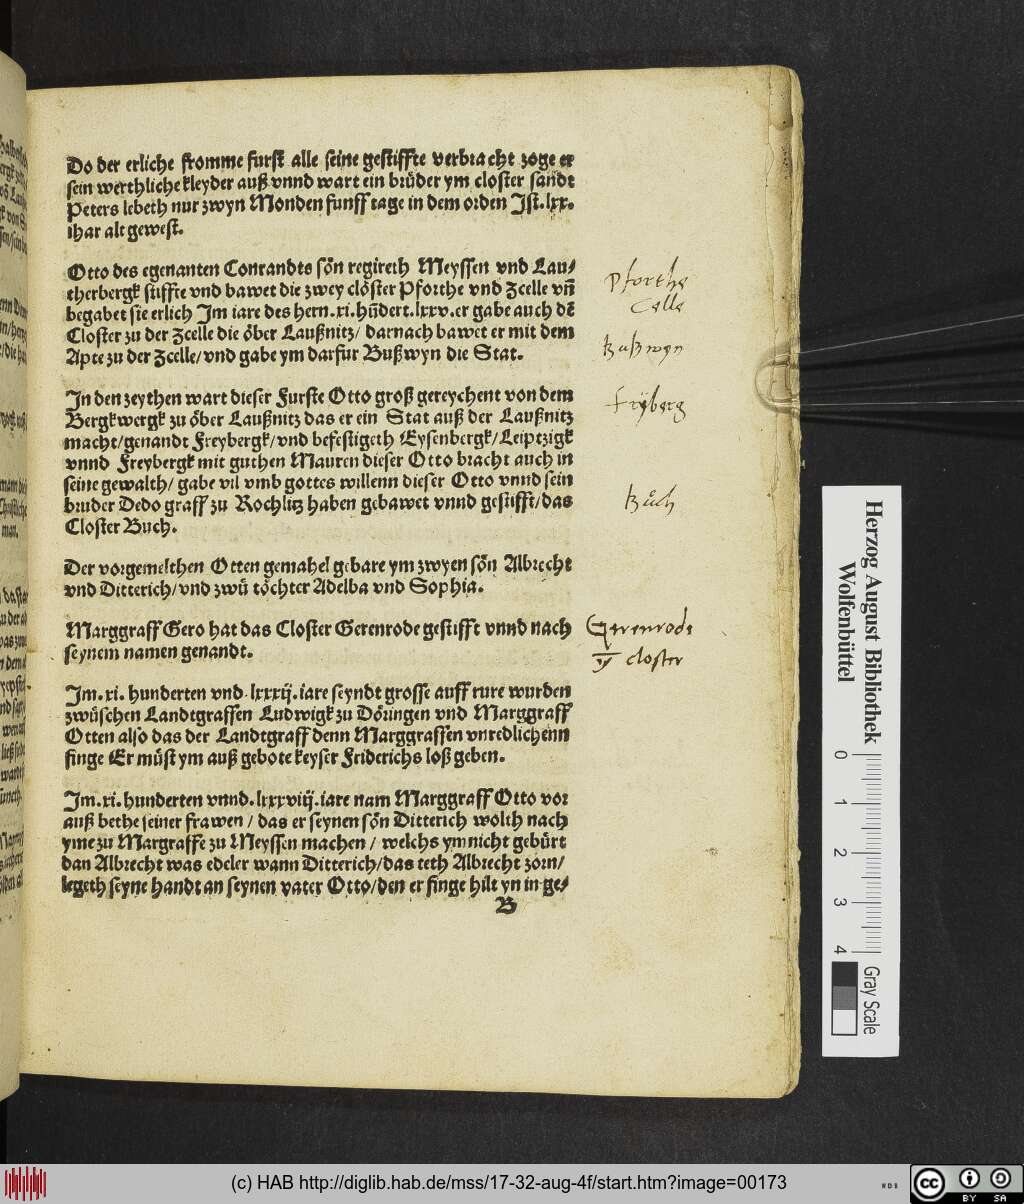 Do der erliche fromme furst alle seine gestiffte verbracht zoge er
sein werthliche kleyder auß vnnd wart ein brůder ym closter sandt
Peters lebeth nur zwyn Monden funff tage in dem orden Ist .lxx.
ihar alt gewest.
Otto des egenanten Conrandts sőn regireth Meyssen vnd Lau⸗
therbergk stiffte vnd bawet die zwey clőster Pforthe vnd Zcelle vn̄
begabet sie erlich Im iare des hern .xi. hūdert .lxxv. er gabe auch dē
Closter zu der Zcelle die őber Laußnitz/ darnach bawet er mit dem
Apte zu der Zcelle/ vnd gabe ym darfur Bußwyn die Stat.
Pforthe
Celle
Bußwyn
In den zeythen wart dieser Furste Otto groß gereychent von dem
Bergkwergk zu őber Laußnitz das er ein Stat auß der Laußnitz
macht/ genandt Freybergk/ vnd befestigeth Eysenbergk/ Leiptzigk
vnnd Freybergk mit guthen Mauren dieser Otto bracht auch in
seine gewalth/ gabe vil vmb gottes willenn dieser Otto vnnd sein
bruder Dedo graff zu Rochlitz haben gebawet vnnd gestifft/ das
Closter Buch.
Fryberg
Bůch
Der vorgemelthen Otten gemahel gebare ym zwyen sőn Albrecht
vnd Ditterich/ vnd zwů tőchter Adelba vnd Sophia.
Marggraff Gero hat das Closter Gerenrode gestifft vnnd nach
seynem namen genandt.
Gerenrode
closter
Im .xi. hunderten vnd .lxxxij. iare seyndt grosse auff rure wurden
zwůschen Landtgraffen Ludwigk zu Dőringen vnd Marggraff
Otten also das der Landtgraff denn Marggraffen vnredlichenn
finge Er můst ym auß gebote keyser Friderichs loß geben.
Im .xi. hunderten vnnd .lxxxviij. iare nam Marggraff Otto vor
auß bethe seiner frawen / das er seynen sőn Ditterich wolth nach
yme zu Margraffe zu Meyssen machen / welchs ym nicht gebůrt
dan Albrecht was edeler wann Ditterich/ das teth Albrecht zorn/
legeth seyne handt an seynen vater Otto/ den er finge hilt yn in ge⸗
B
Herzog August Bibliothek
Wolfenbüttel
0 1 2 3 4
Gray Scale
(c) HAB http://diglib.hab.de/mss/17-32-aug-4f/start.htm?image=00173
WDB
cc BY SA